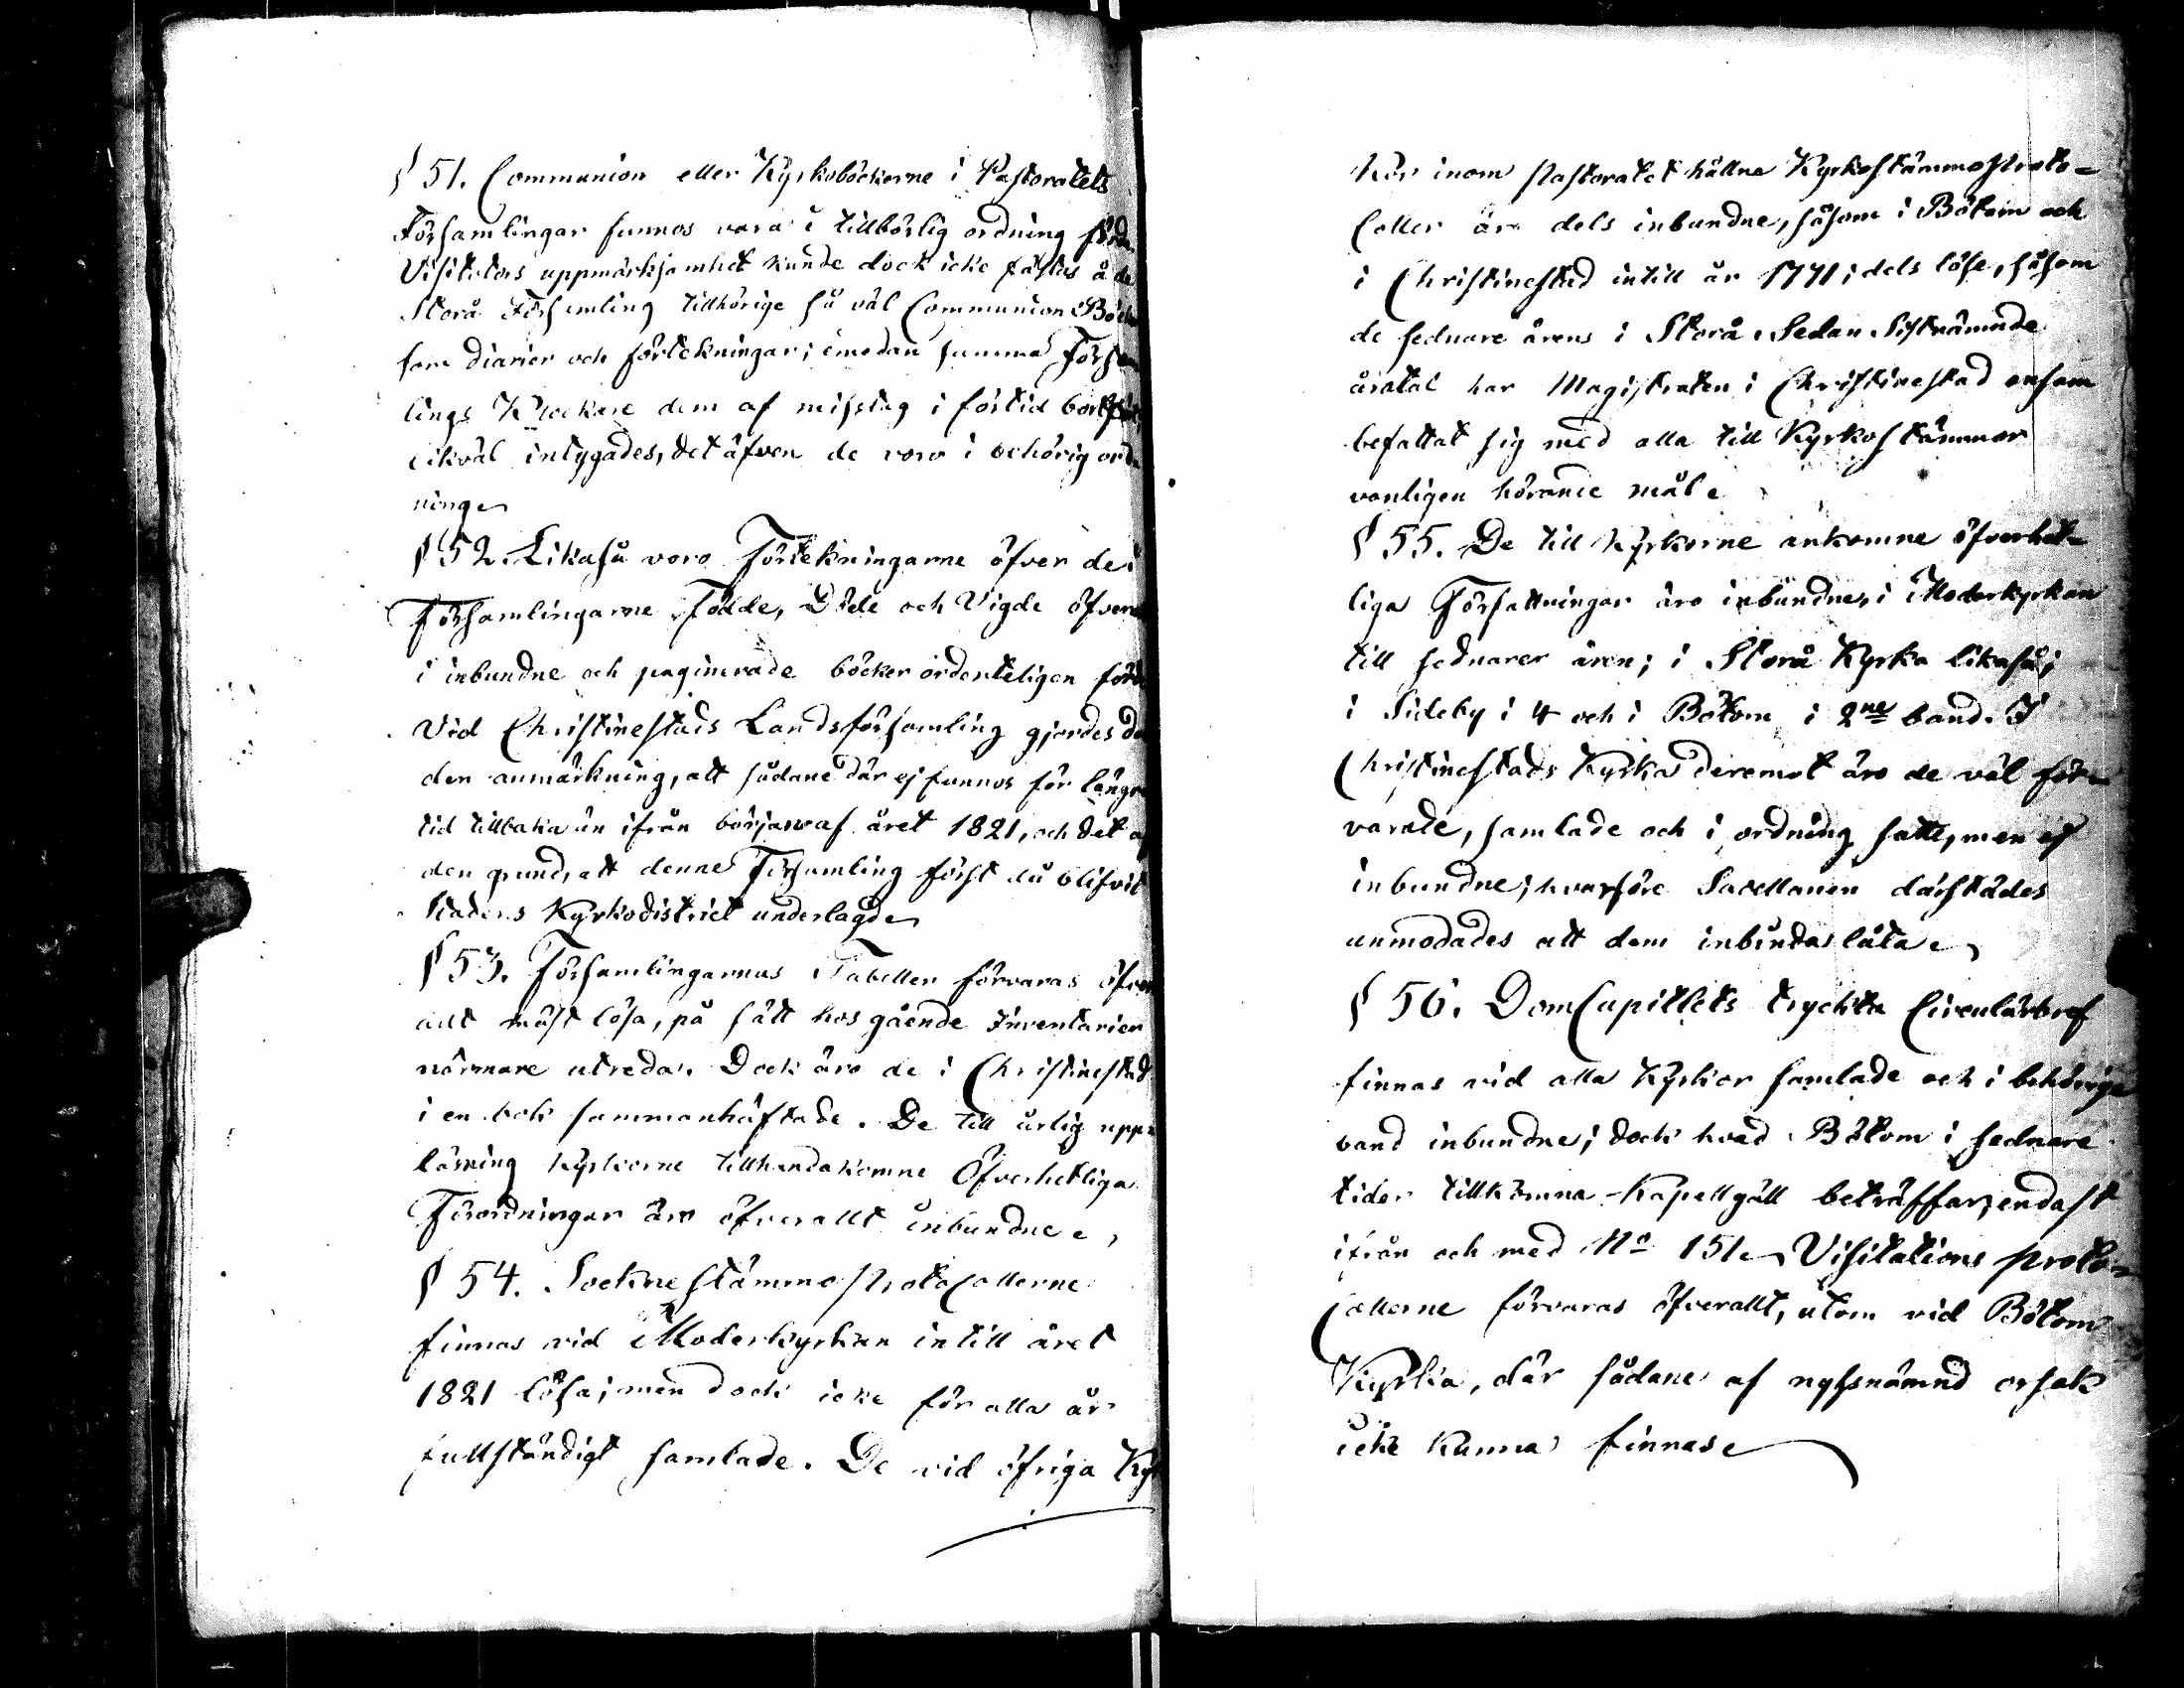 § 51. Communion eller Kyrkoböckerne i Pastoratets
Församlingar funnos vara i tillbörlig ordning förde
Visitators uppmärksamhet kunde dock icke fästas å de
Storå Församling tillhörige så väl Communion Böcker
som diarier och förtekningar; emedan samma Försam
lings Klockare dem af misstag i förtid bortfört
likväl intygades, det äfven de voro i behörig ord
ning.
§ 52. Likaså voro Förtekningarne öfver de i
Församlingarne Födde, Döde och Vigde öfverallt
i inbundne och paginerade böcker ordenteligen förde
Vid Christinestads Landsförsamling gjordes dock
den anmärkning, att sådane där ej funnos för längre
tid tillbaka än ifrån början af året 1821, och det af
den grund, att denne Församling först då blifvit
Stadens Kyrkodistrict underlagd.
§ 53. Församlingarnas Tabeller förvaras öfver
allt mäst lösa, på sätt hos gående Inventarier
närmare utreda. Dock äro de i Christinestad
i en bok sammanhäftade. De till årlig upp=
läsning Kyrkorne tillhandakomne Öfverhetliga
Förordningar äro öfverallt inbundne.
§ 54. Sockne stämmo Protocollerne
finnas vid Moderkyrkan intill året
1821 lösa; men dock icke för alla år
fullständigt samlade. De vid öfriga Kyr
kor inom Pastoratet hållne Kyrkostämmo Proto=
coller äro dels inbundne, såsom i Bötom och
i Christinestad intill år 1771; dels löse, såsom
de sednare årens i Storå. Sedan Sistnämnde
åratal har Magistraten i Christinestad ensam
befattat sig med alla till Kyrkostämmor
vanligen hörande mål.
§ 55. De till Kyrkorne ankomne öfverhet=
liga Författningar äro inbundne, i Moderkyrkan
till sednare åren; i Storå Kyrka likaså;
i Sideby i 4 och i Bötom i 2ne band. I
Christinestads Kyrka deremot äro de väl för=
varade, samlade och i ordning satte, men ej
inbundne; hvarföre Sacellanen därstädes
anmodades att dem inbinda låta.
§ 56. DomCapitlets tryckta Circulärbref
finnas vid alla Kyrkor samlade och i behörige
band inbundne; dock hvad Bötom i sednare
tider tillkomna Kapellgäll beträffar, endast
ifrån och med No 151. Visitations proto=
collerne förvaras öfverallt, utom vid Bötom
Kyrka, där sådane af nyssnämnd orsak
icke kunna finnas.